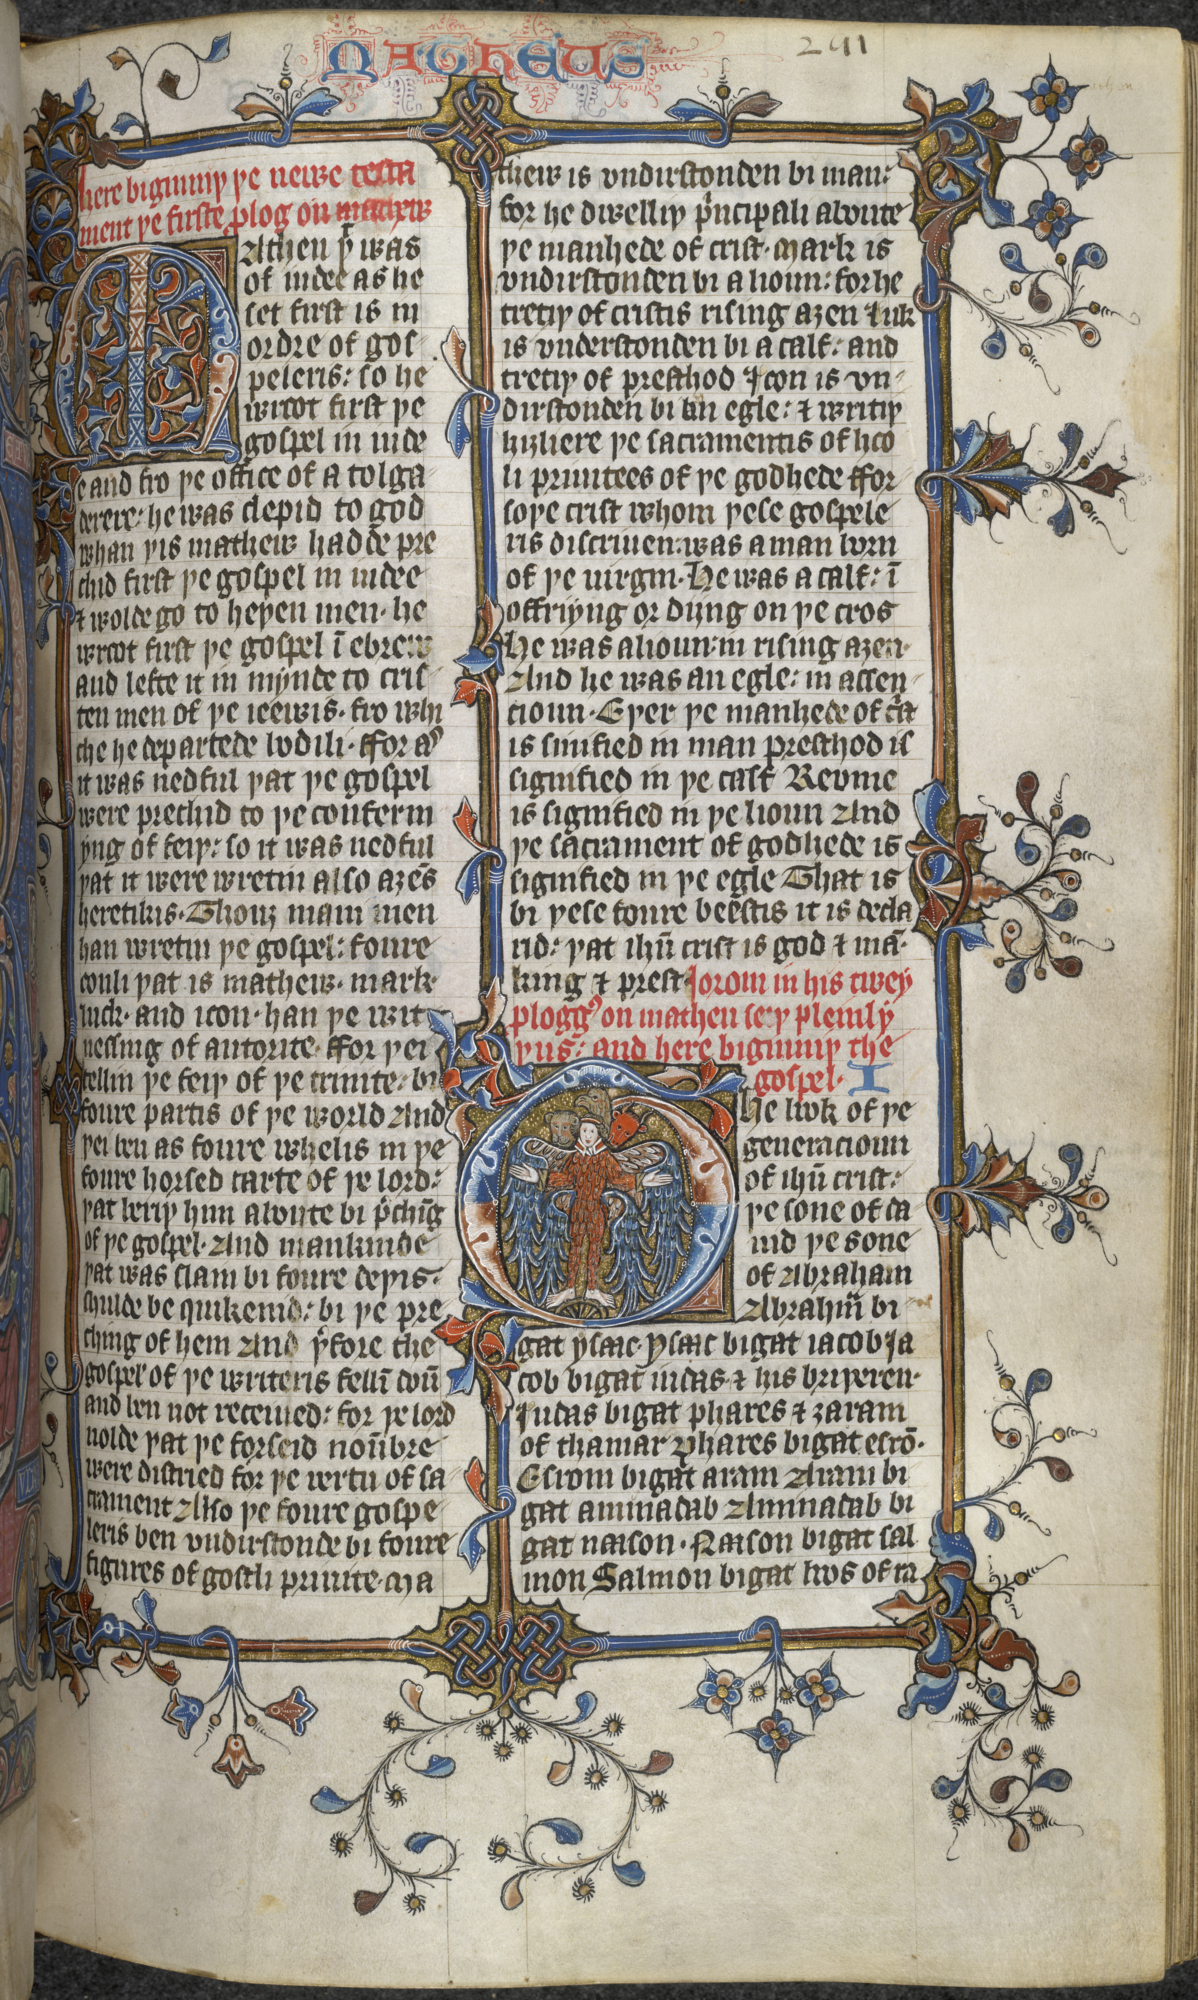 MATHEUS
241
here biginniþ þe newe testa
ment þe firste plog on mathew
Matheu þt was
of iudee as he
set first is in
ordre of gos
peleris: so he
wroot first þe
gospel in iude
e and fro þe office of a tolga
derere: he was clepid to god
whan þis mathew hadde pre
chid first þe gospel in iudee
⁊ wolde go to heþen men· he
wroot first þe gospel ī ebrew
and lefte it in mynde to cris
ten men of þe ieewis· fro whi
che he departede bodili· ffor as
it was nedful þat þe gospel
were prechid to þe conferm
yng of feiþ: so it was nedful
þat it were wretin also aȝēs
heretikis· Thouȝ mani men
han wretin þe gospel: foure
oonli þat is mathew· mark·
luck· and ioon· han þe wit
nessing of autorite· ffor þei
tellin þe feiþ of þe trinite: bi
foure partis of þe world And
þei ben as foure whelis in þe
foure horsed carte of þe lord:
þat beriþ him aboute bi p̄chīg
of þe gospel· And mankinde
þat was slain bi foure deþis·
schulde be quikenid: bi þe pre
ching of hem And þ̄fore the
gospel of þe writeris fellī doū
and ben not receiued: for þe lord
nolde þat þe forseid noūbre
were distried for þe vertu of sa
crament Also þe foure gospe
leris ben vndirstonde bi foure
figures of gostli priuite· Ma
thew is vndirstonden bi man:
for he dwelliþ p̄ncipali aboute
þe manhede of crist· Mark is
vndirstonden bi a lioun: for he
tretiþ of cristis rising aȝen Luk
is vnderstonden bi a calf: and
tretiþ of presthod Ioon is vn
dirstonden bi an egle: ⁊ writiþ
hiȝliere þe sacramentis of hoo
li priuitees of þe godhede ffor
soþe crist whom þese gospele
ris discriuen: was a man born
of þe virgin· He was a calf: ī
offriyng or diyng on þe cros
He was a lioun: in rising aȝen·
And he was an egle: in ascen
cioun· Eþer þe manhede of c̄st
is sinified in man presthod is
signified in þe calf Rewme
is signified in þe lioun And
þe sacrament of godhede is
signified in þe egle That is
bi þese foure beēstis it is decla
rid: þat ihū crist is god ⁊ mā·
king ⁊ prest· Jerom in his twey
plogg on matheu seiþ pleinly
þus: and here biginniþ the
gospel· I
The book of þe
generacioun
of ihū crist:
þe sone of da
uid þe sone
of Abraham
Abrahā bi
gat ysaac· ysaac bigat iacob Ja
cob bigat iudas ⁊ his briþeren·
Judas bigat phares ⁊ zaram
of thamar Phares bigat esrō·
Esrom bigat aram Aram bi
gat aminadab Aminadab bi
gat naason· Naason bigat sal
mon Salmon bigat boos of ra